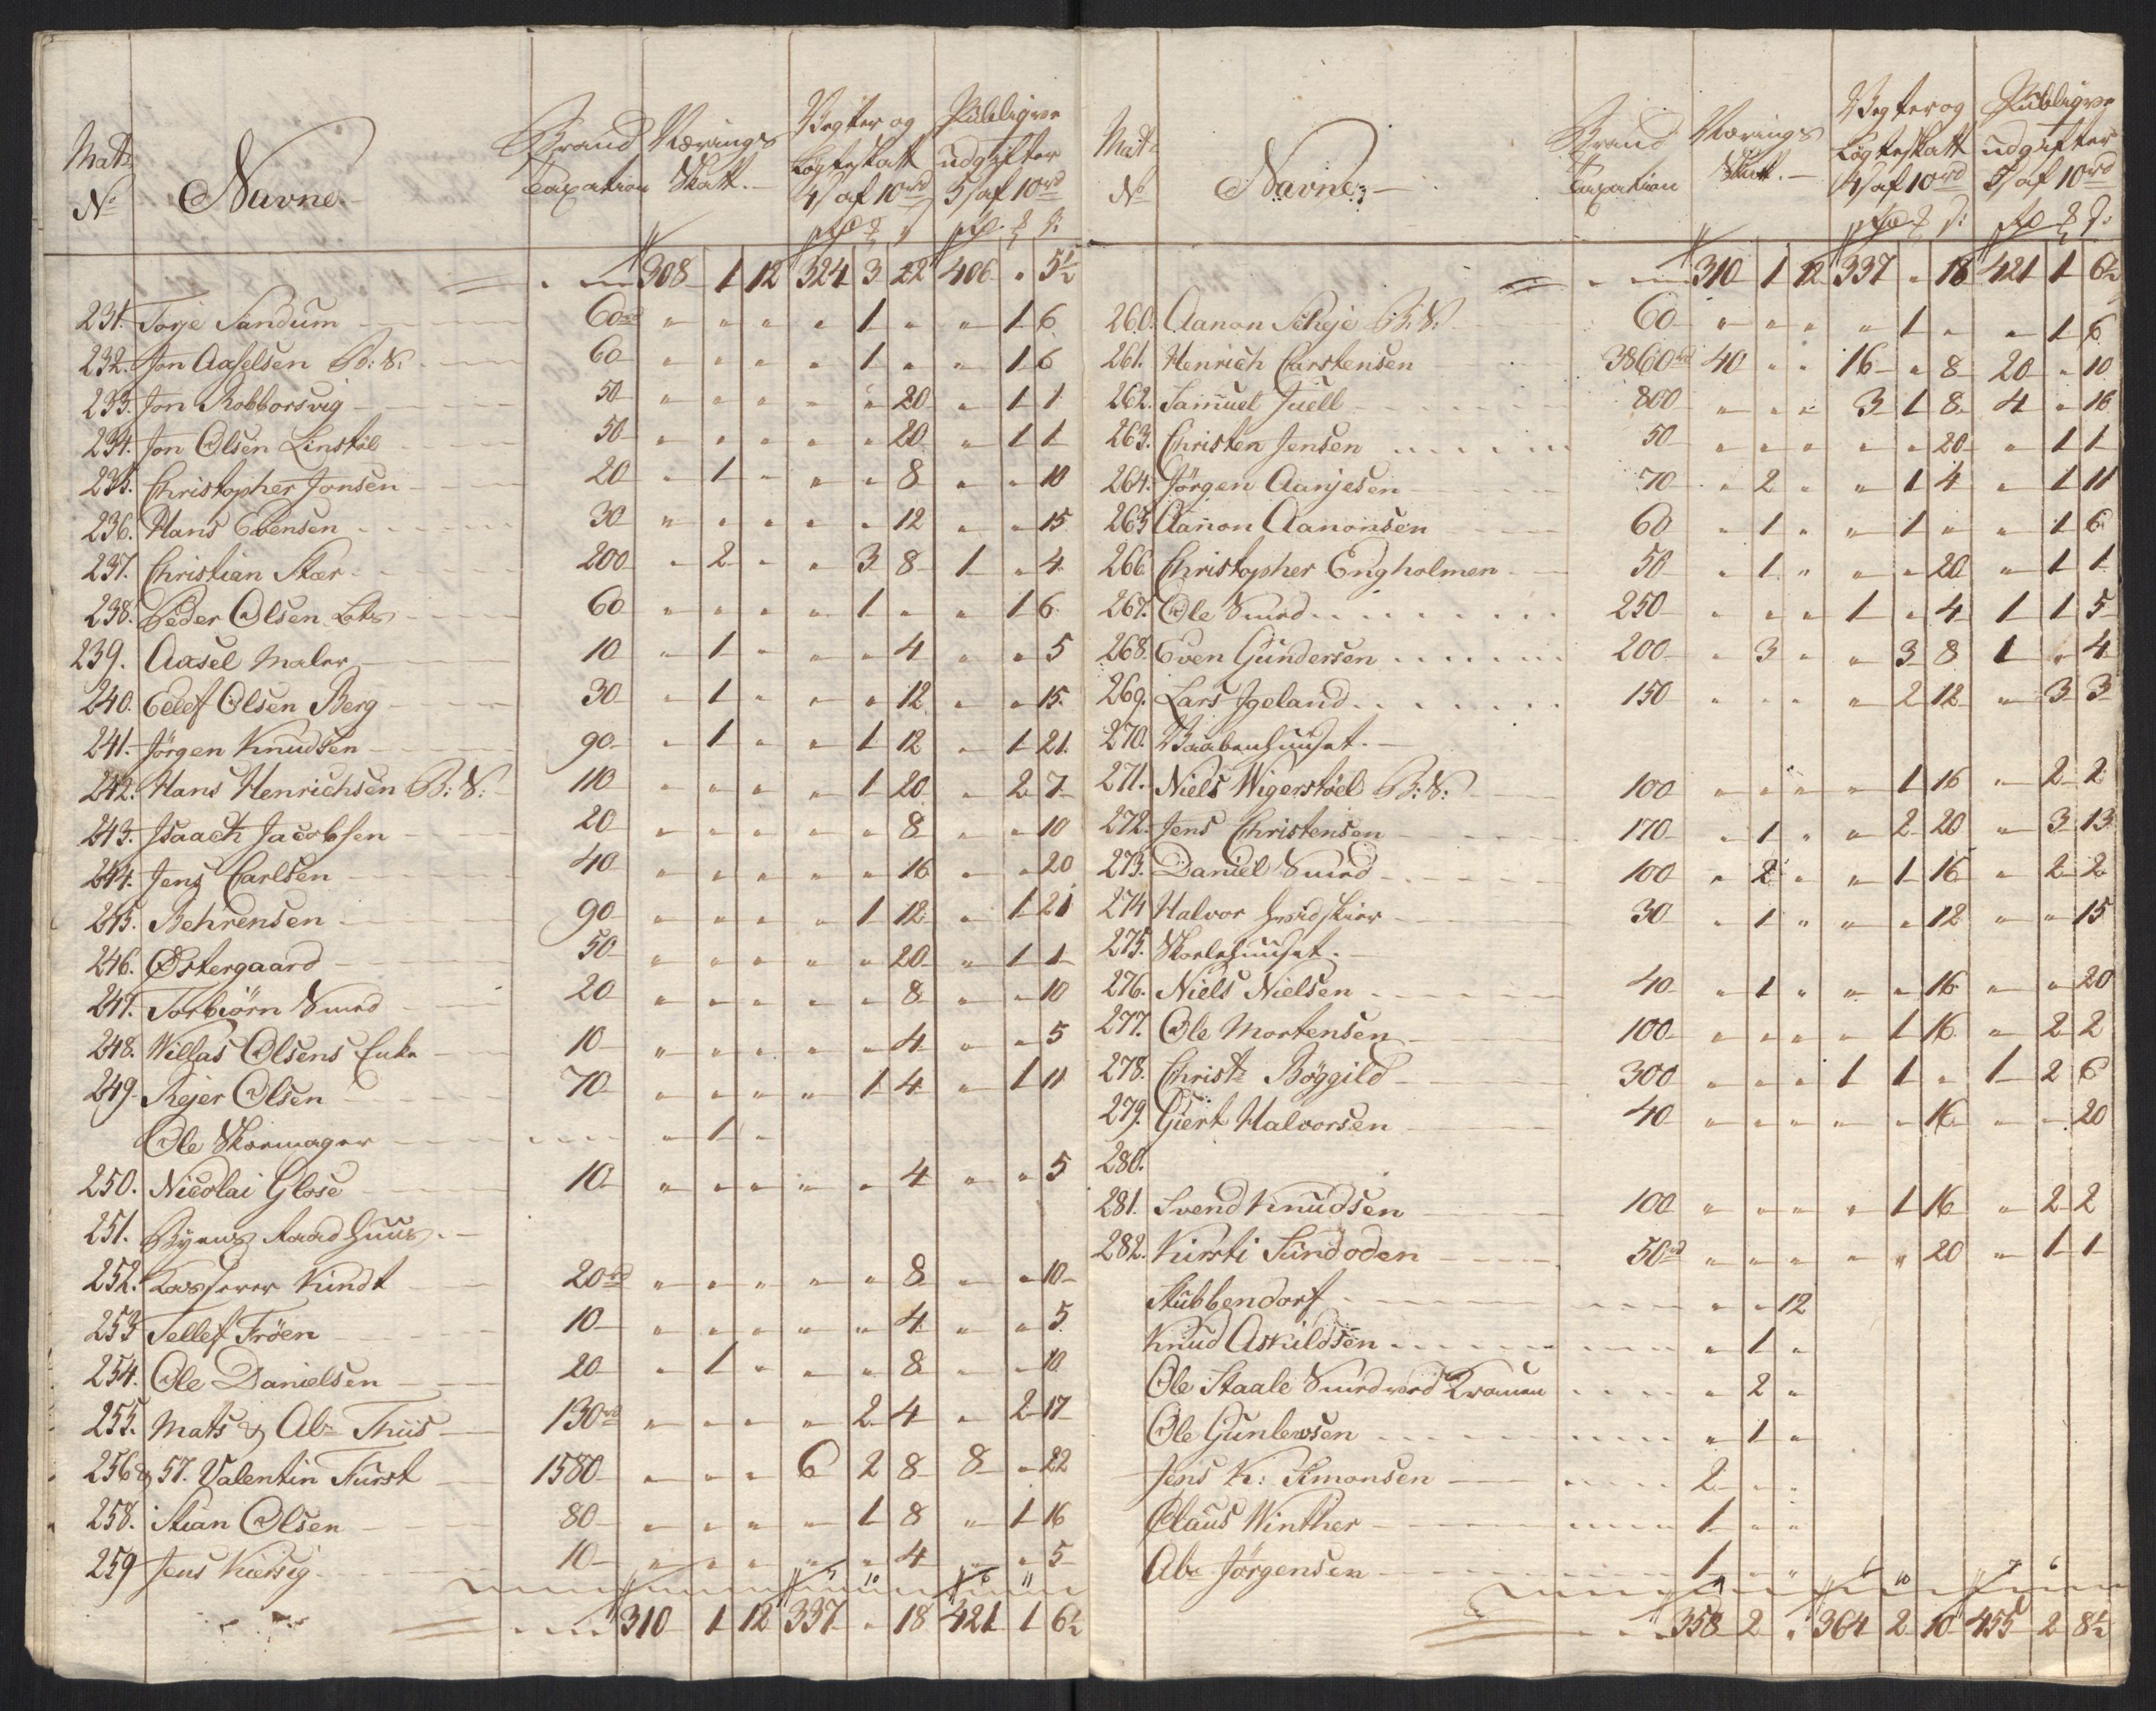 Matr
No
Navne
Brand
Taxation
Nærings
Skatt.
Vægter og
Løgteskatt
4/ af 10rd
Publique
udgifter
5/ af 10rd
308 1 12 324 3 22 406 " 5½
231. Torje Sandum 60rd " " " " 1 " " 1 6
232. Jon Aaselsen B: S: 60 " " " " 1 " " 1 6
233. Jon Robborsvig 50 " " " " " 20 " 1 1
234. Jon Olsen Linstøl 50 " " " " " 20 " 1 1
235. Christopher Jonsen 20 " 1 " " " 8 " " 10
236. Hans Ebensen 30 " " " " " 12 " " 15
237. Christian Skær 200 " 2 " " 3 8 1 " 4
238. Peder Olsen Lots 60 " " " " 1 " " 1 6
239. Aasel Maler 10 " 1 " " " 4 " " 5
240. Eelef Olsen Berg 30 " 1 " " " 12 " " 15
241. Jörgen Knudsen 90 " 1 " " 1 12 " 1 21
242. Hans Henrichsen B: S: 110 " " " " 1 20 " 2 7
243. Isaach Jacobsen 20 " " " " " 8 " " 10
244. Jens Carlsen 40 " " " " " 16 " " 20
245. Behrensen 90 " " " " 1 12 " 1 21
246. Østergaard 50 " " " " " 20 " 1 1
247. Torbiörn Smed 20 " " " " " 8 " " 10
248. Willas Olsens Enke 10 " " " " " 4 " " 5
249. Rejer Olsen 70 " " " " 1 4 " 1 11
Ole Skoemager " 1 "
250. Nicolai Glose 10 " " " " " 4 " " 5
251. Byens Raadhuus.
252. Kasserer Kindt 20rd " " " " " 8 " " 10
253 Tellef Tröen 10 " " " " " 4 " " 5
254. Ole Danielsen 20 " 1 " " " 8 " " 10
255. Mats & Ab: Thiis 130rd " " " " 2 4 " 2 17
256 & 57. Valentin Fürst 1580 " " " 6 2 8 8 " 22
258. Stian Olsen 80 " " " " 1 8 " 1 16
259 Jens Kielsig 10 " " " " " 4 " " 5
310 1 12 337 " 18 421 1 6½
Matr
No
Navne
Brand
Taxation
Nærings
Skatt.
Vægter og
Løgteskatt
4/ af 10rd
Publique
udgifter
5/ af 10rd
310 1 12 337 " 18 421 1 6½
260. Aanon Scheje B: S: 60 " " " " 1 " " 1 6
261. Henrich Carstensen 3860rd 40 " " 16 " 8 20 " 10
262. Samuel Juell 800 " " " 3 1 8 4 " 16
263. Christen Jensen 50 " " " " " 20 " 1 1
264. Jörgen Aanjesen 70 " 2 " " 1 4 " 1 11
265 Aanon Aanonsen 60 " 1 " " 1 " " 1 6
266 Christopher Engholmen 50 " 1 " " " 20 " 1 1
267. Ole Smed 250 " " " 1 " 4 1 1 5
268. Even Gundersen 200 " 3 " " 3 8 1 " 4
269. Lars Igeland 150 " " " " 2 12 " 3 3
270. Vaabenhuuset.
271. Niels Wigerstöel B: S: 100 " " " " 1 16 " 2 2
272. Jens Christensen 170 " 1 " " 2 20 " 3 13
273. Daniel Smed 100 " 2 " " 1 16 " 2 2
274 Halvor Hvidskier 30 " 1 " " " 12 " " 15
275. Skolehuuset.
276. Niels Nielsen 40 " 1 " " " 16 " " 20
277. Ole Mortensen 100 " " " " 1 16 " 2 2
278. Christ: Böggild 300 " " " 1 1 " 1 2 6
279. Giert Halvorsen 40 " " " " " 16 " " 20
280.
281. Svend Knudsen 100 " " " " 1 16 " 2 2
282. Kirsti Sundoden 50rd " " " " " 20 " 1 1
Stubbendorf " " 12
Knud Askildsen " 1 "
Ole Staale Smed ved Kranen " 2 "
Ole Gunlewsen " 1 "
Jens K: Simonsen 2 " "
Claus Winther 1 " "
Ab: Jörgensen 1 " "
358 2 " 364 2 10 455 2 8½